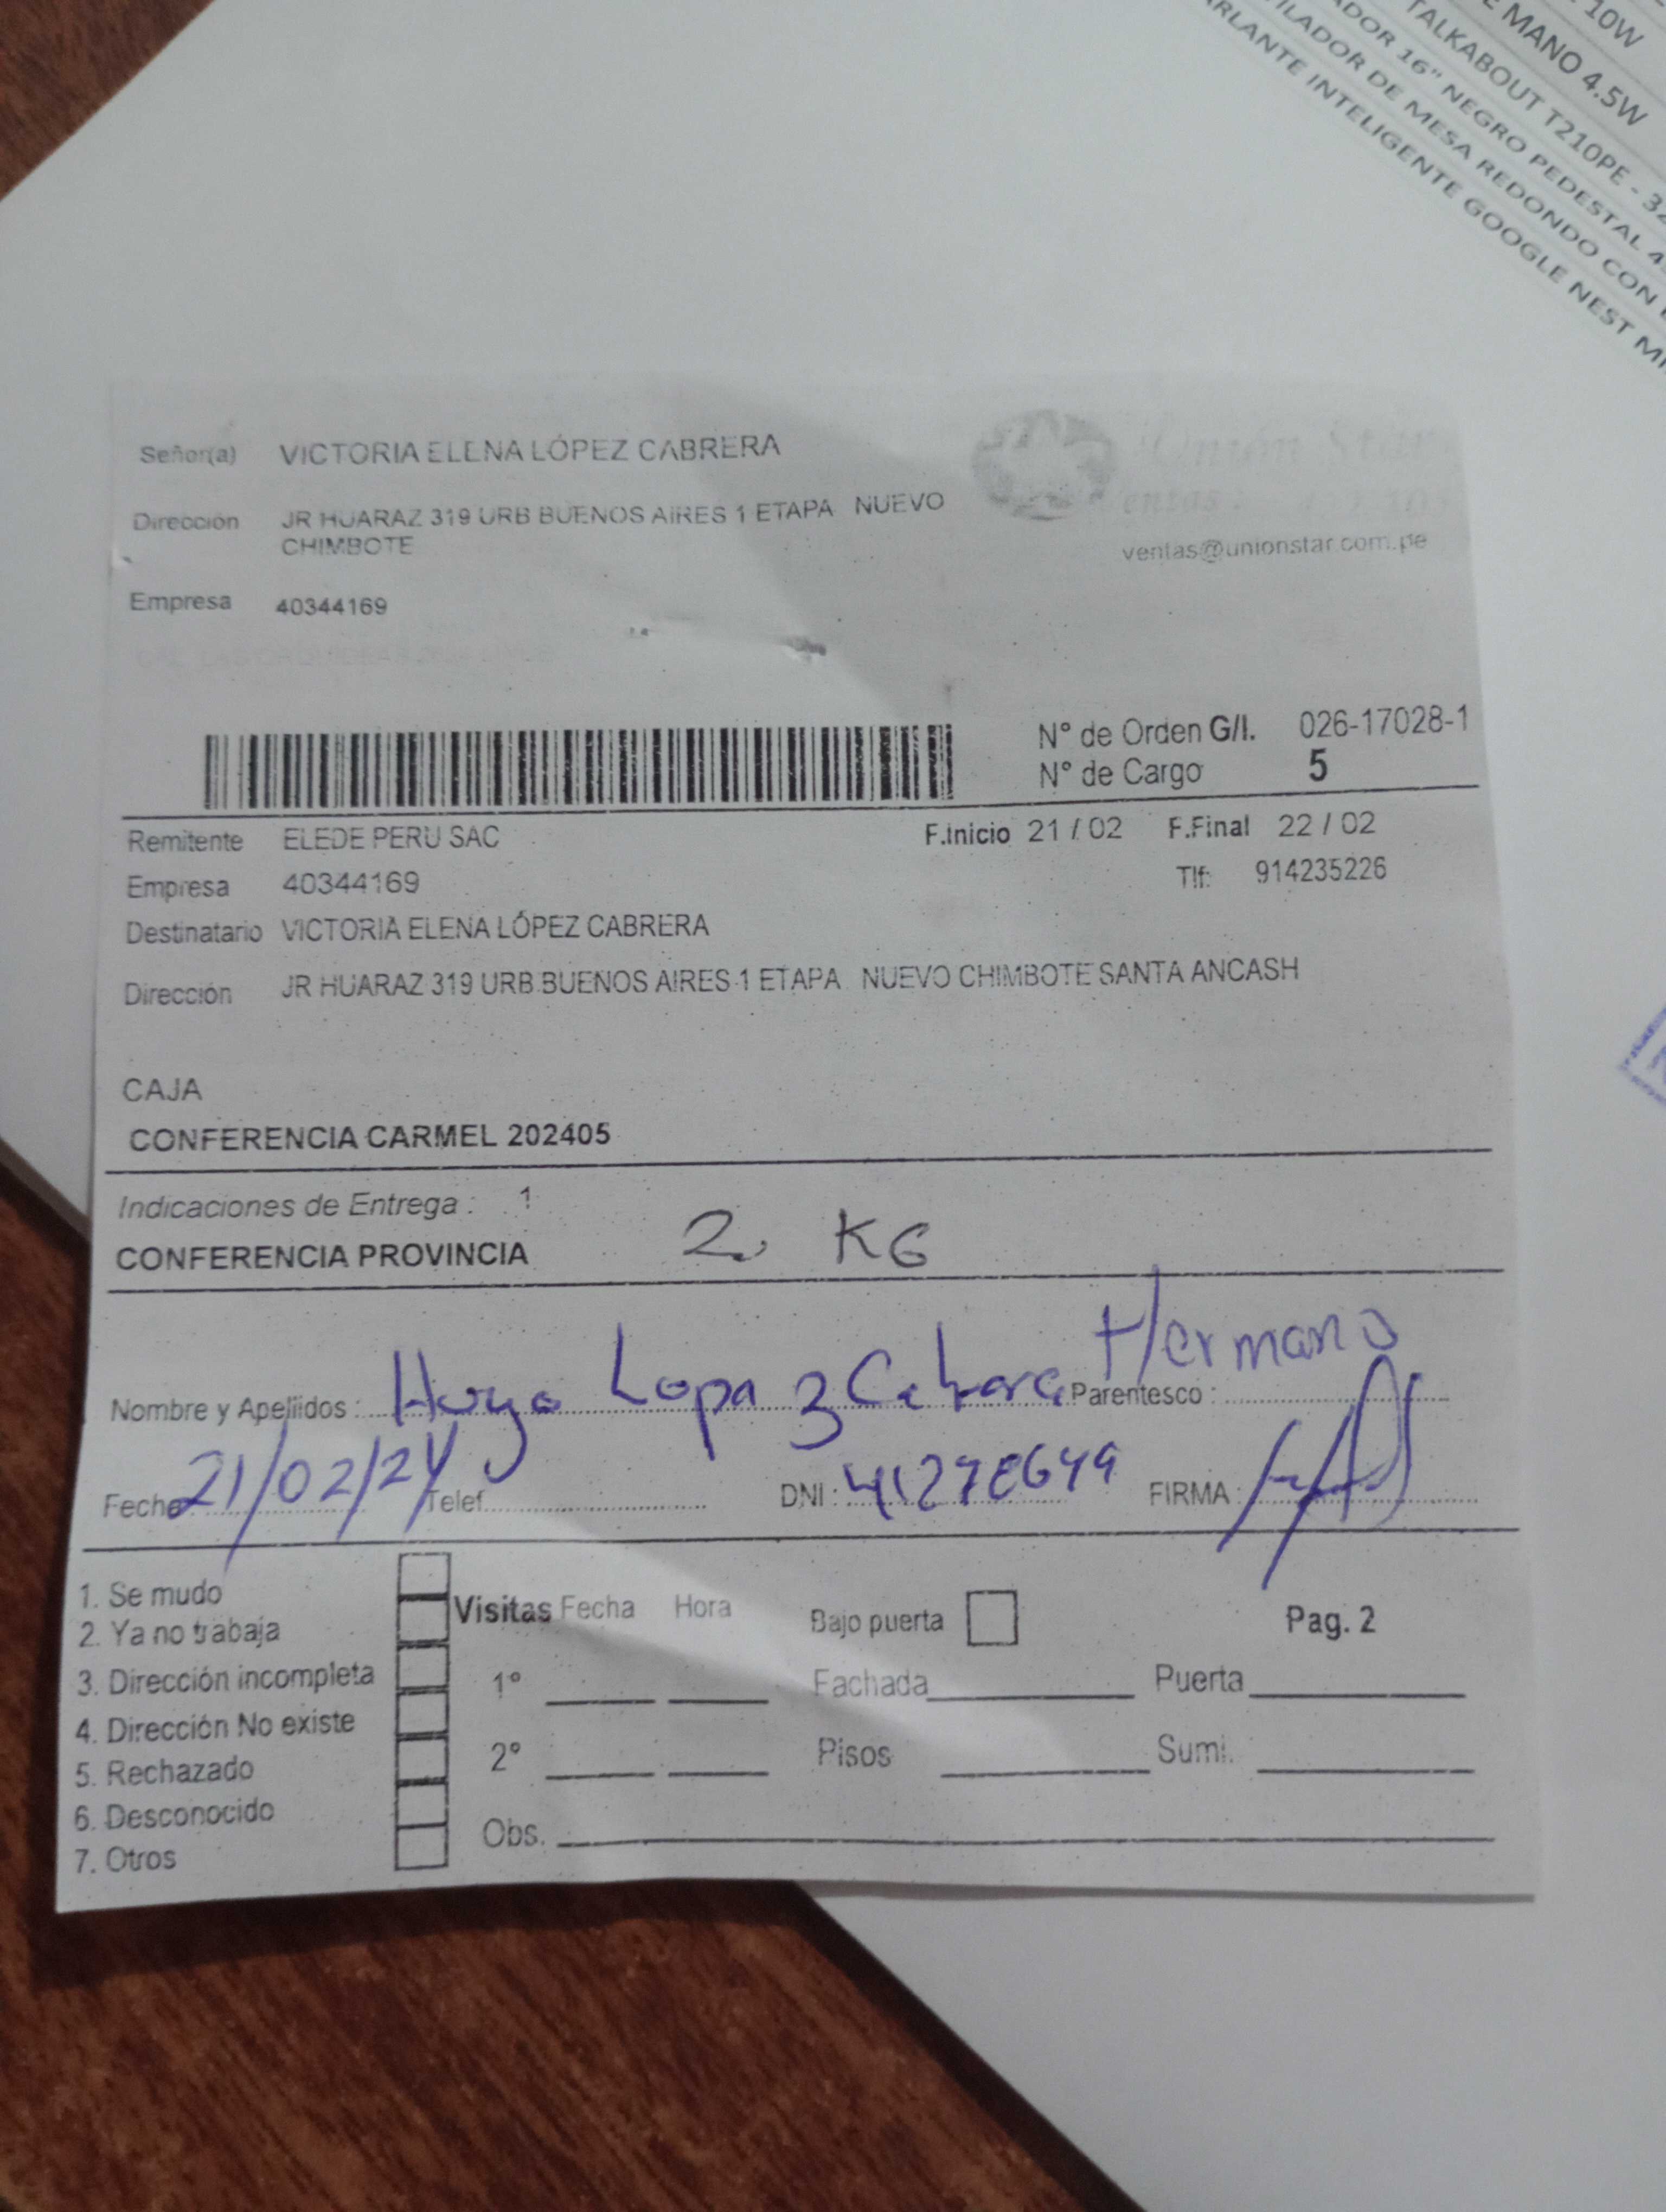 10W
E MANO 4.5W
TALKABOUT T210PE - 32
ADOR 16" NEGRO PEDESTAL 4
ILADOR DE MESA REDONDO CON
RLANTE INTELIGENTE GOOGLE NEST MI
Señor(a) VICTORIA ELENA LÓPEZ CABRERA
Unión Star
Dirección JR HUARAZ 319 URB BUENOS AIRES 1 ETAPA NUEVO
CHIMBOTE
ventas
ventas@unionstar.com.pe
Empresa 40344169
N° de Orden G/I. 026-17028-1
N° de Cargo 5
Remitente ELEDE PERU SAC F.Inicio 21 / 02 F.Final 22 / 02
Empresa 40344169 Tlf: 914235226
Destinatario VICTORIA ELENA LÓPEZ CABRERA
Dirección JR HUARAZ 319 URB BUENOS AIRES 1 ETAPA NUEVO CHIMBOTE SANTA ANCASH
CAJA
CONFERENCIA CARMEL 202405
Indicaciones de Entrega : 1
CONFERENCIA PROVINCIA 2 KG
Nombre y Apellidos : Hugo Lopez Parentesco : Hermano
Fecha 21/02/24 Telef. DNI : FIRMA :
1. Se mudo
2. Ya no trabaja
3. Dirección incompleta
4. Dirección No existe
5. Rechazado
6. Desconocido
7. Otros
Visitas Fecha Hora Bajo puerta Pag. 2
1° Fachada Puerta
2° Pisos Sumi.
Obs.